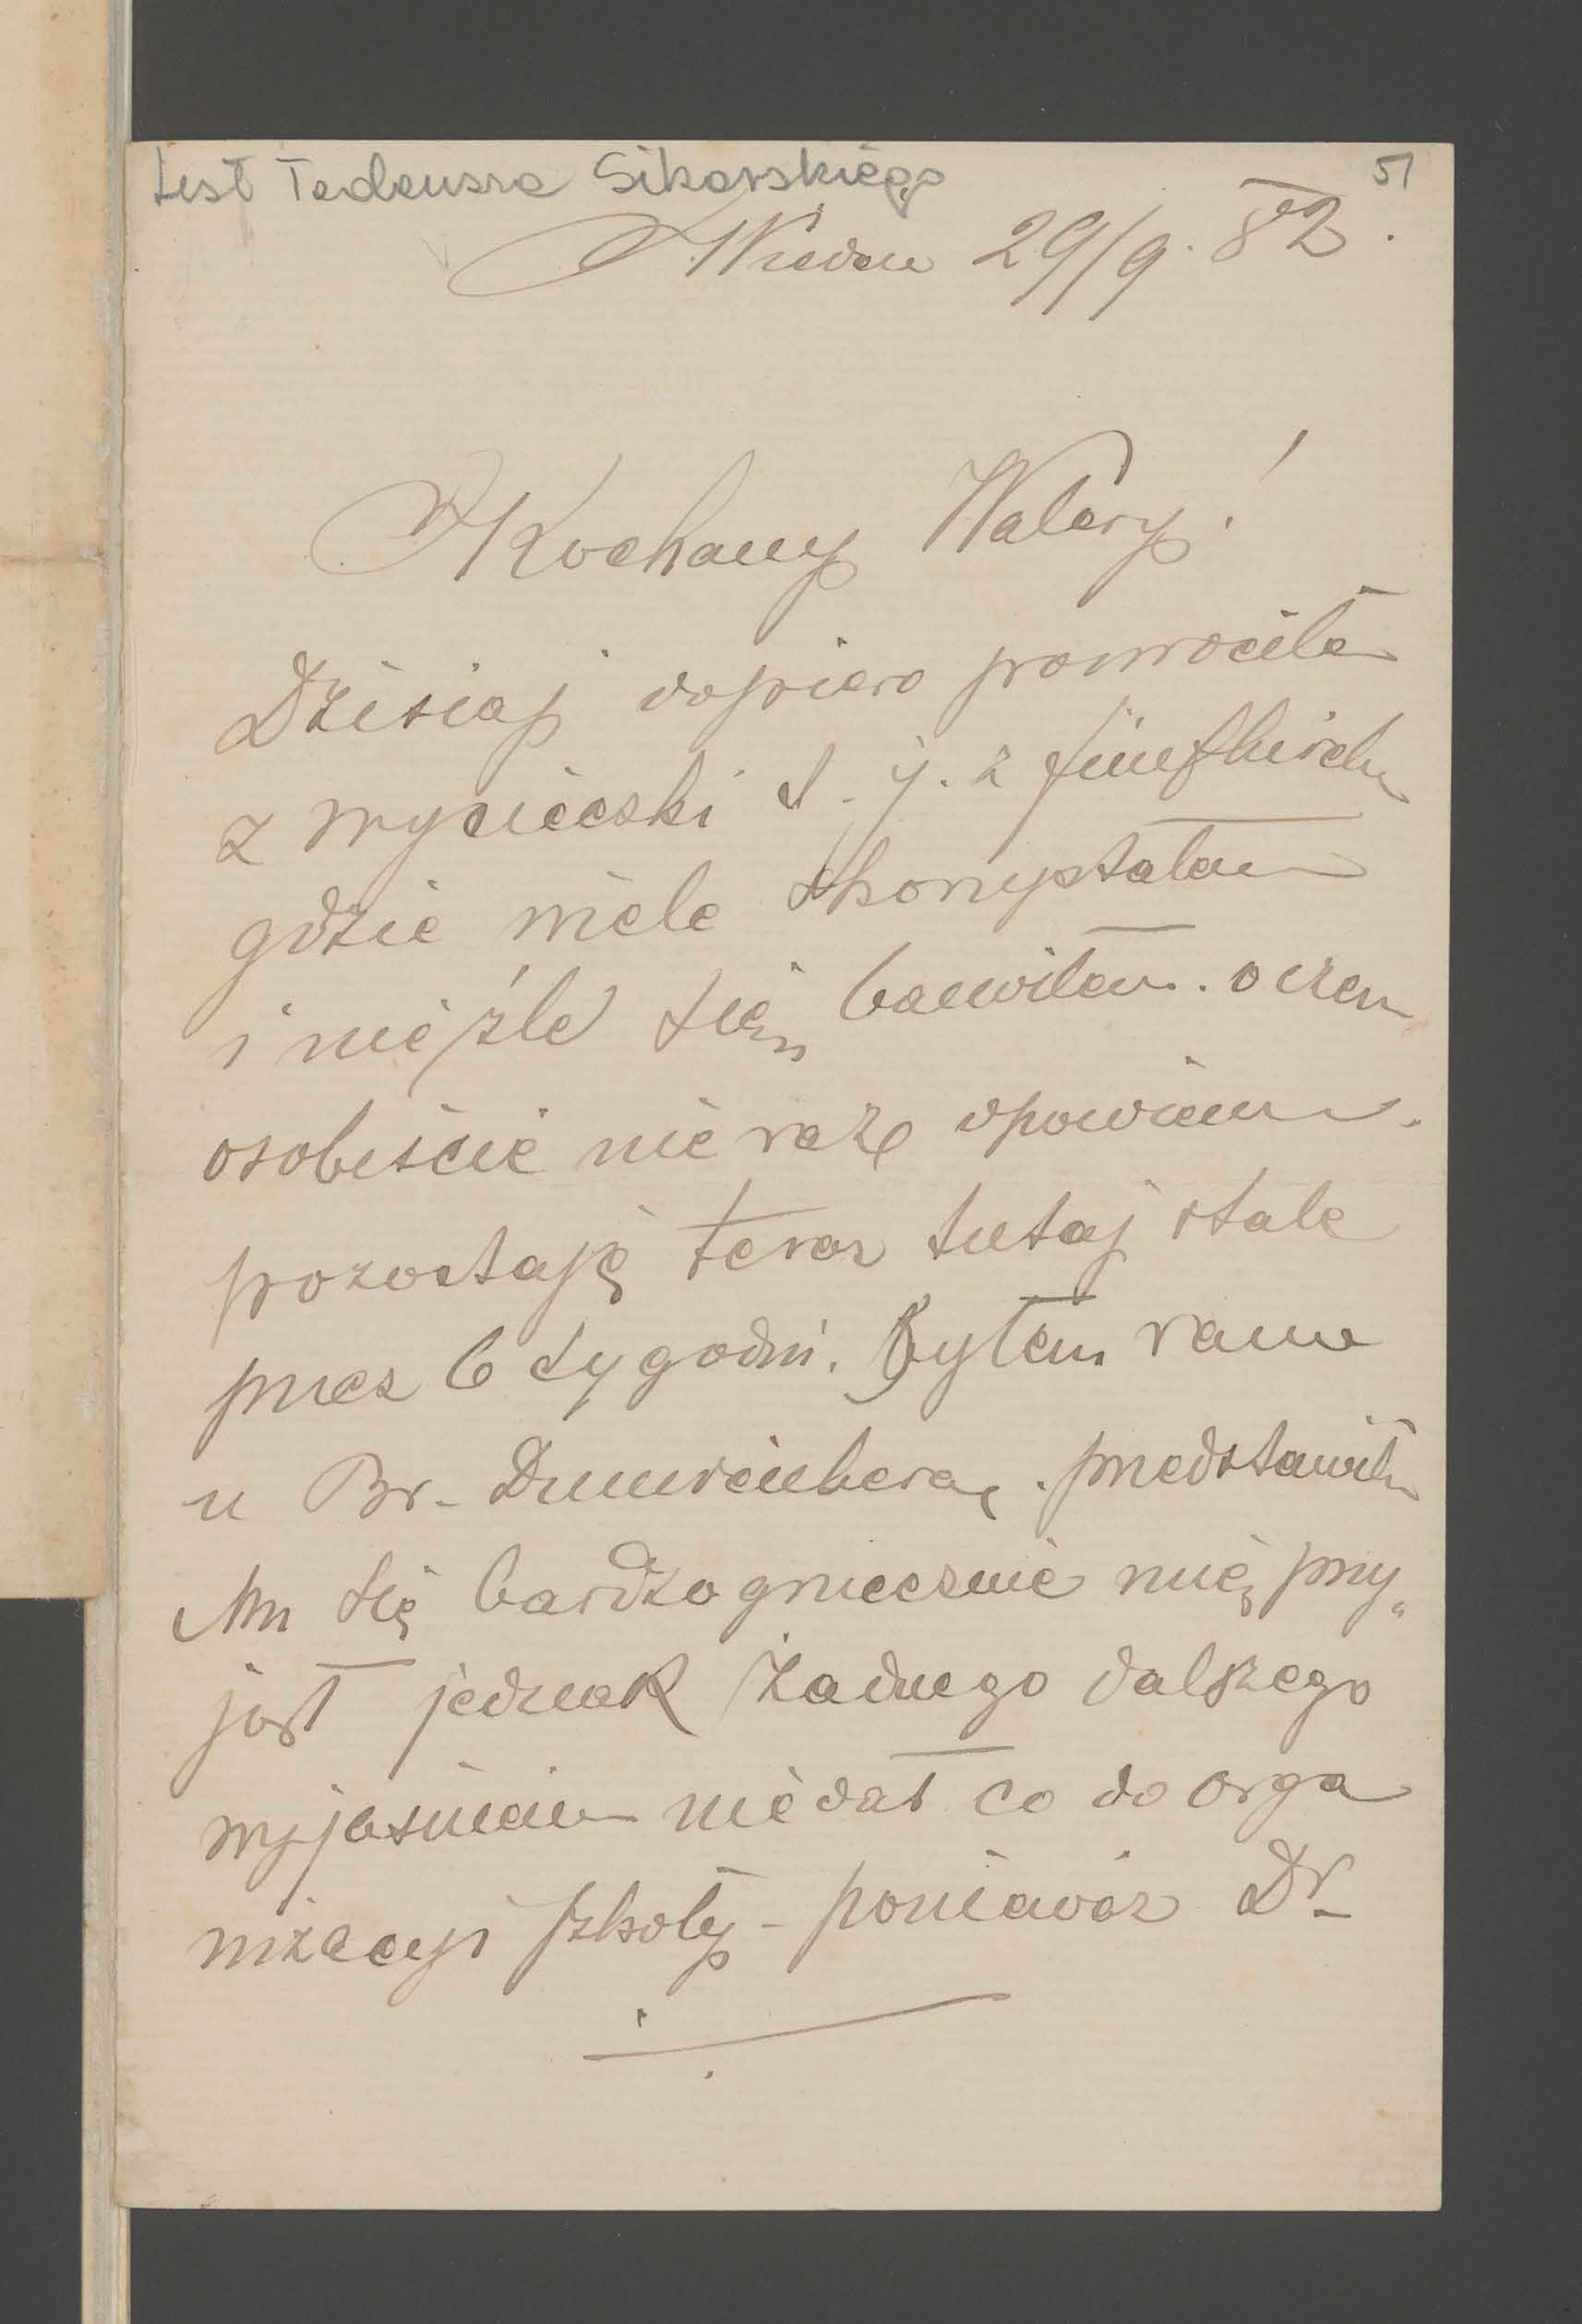 List Tadeusza Sikorskiego
51
Wieden 29/9. 82.
Kochany Walery!
Dzisiaj dopiero powrociłem
z wycieczki t. j. z Fünfkirchen
gdzie wiele skorzystałem
i nieźle się bawiłem. o czem
osobiście nie raz opowiem.
pozostaję teraz tutaj stale
przez 6 tygodni. Byłem rano
u Br. przedstawiłem
Mu się bardzo grzecznie mię przy„
jął jednak żadnego dalszego
wyjaśnienia nie dał co do orga
nizacyi szkoły - ponieważ Dr